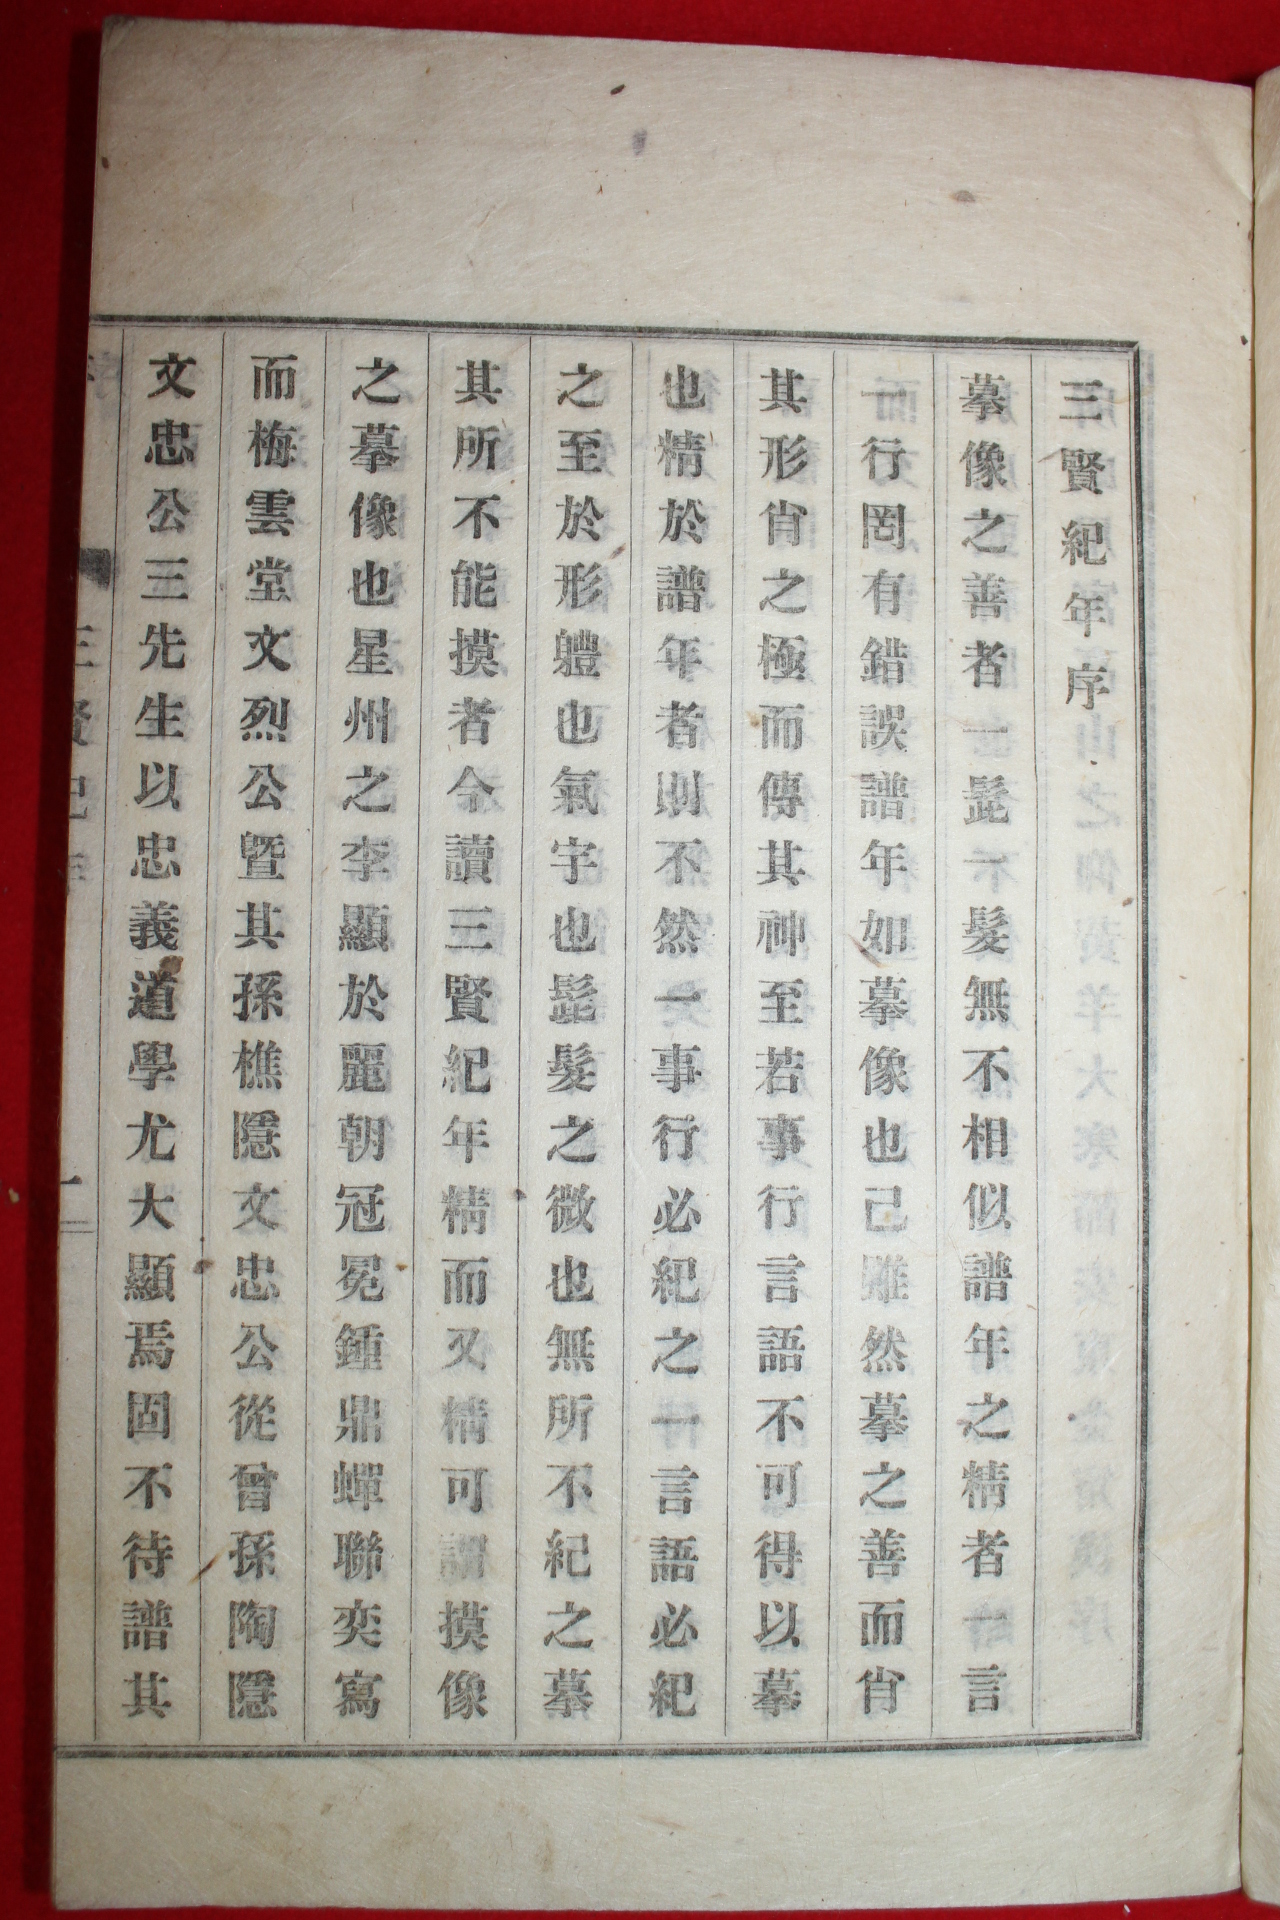 三賢紀年序
摹像之善者一髭一髮無不相似譜年之精者一言
一行罔有錯誤譜年如摹像也已雖然摹之善而肖
其形肖之極而傳其神至若事行言語不可得以摹
也精於譜年者則不然一事行必紀之一言語必紀
之至於形軆也氣宇也髭髮之微也無所不紀之摹
其所不能摸者今讀三賢紀年精而又精可謂摸像
之摹像也星州之李顯於麗朝冠冕鍾鼎蟬聯奕寫
而梅雲堂文烈公曁其孫樵隱文忠公從曾孫陶隱
文忠公三先生以忠義道學尤大顯焉固不待譜其
三賢紀年
一